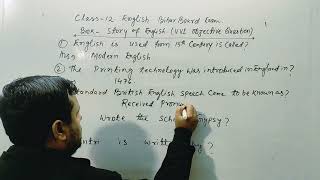 Class-12 English Bihar Board Exam
Book- Story of English (VVI Objective Question)
① English is used from 15th Century is Called?
Modern English
② The Printing technology was introduced in England in?
1476.
Standard British English Speech Came to be known as?
Received Pronu
Wrote the Scholar Gypsy?
is written by?